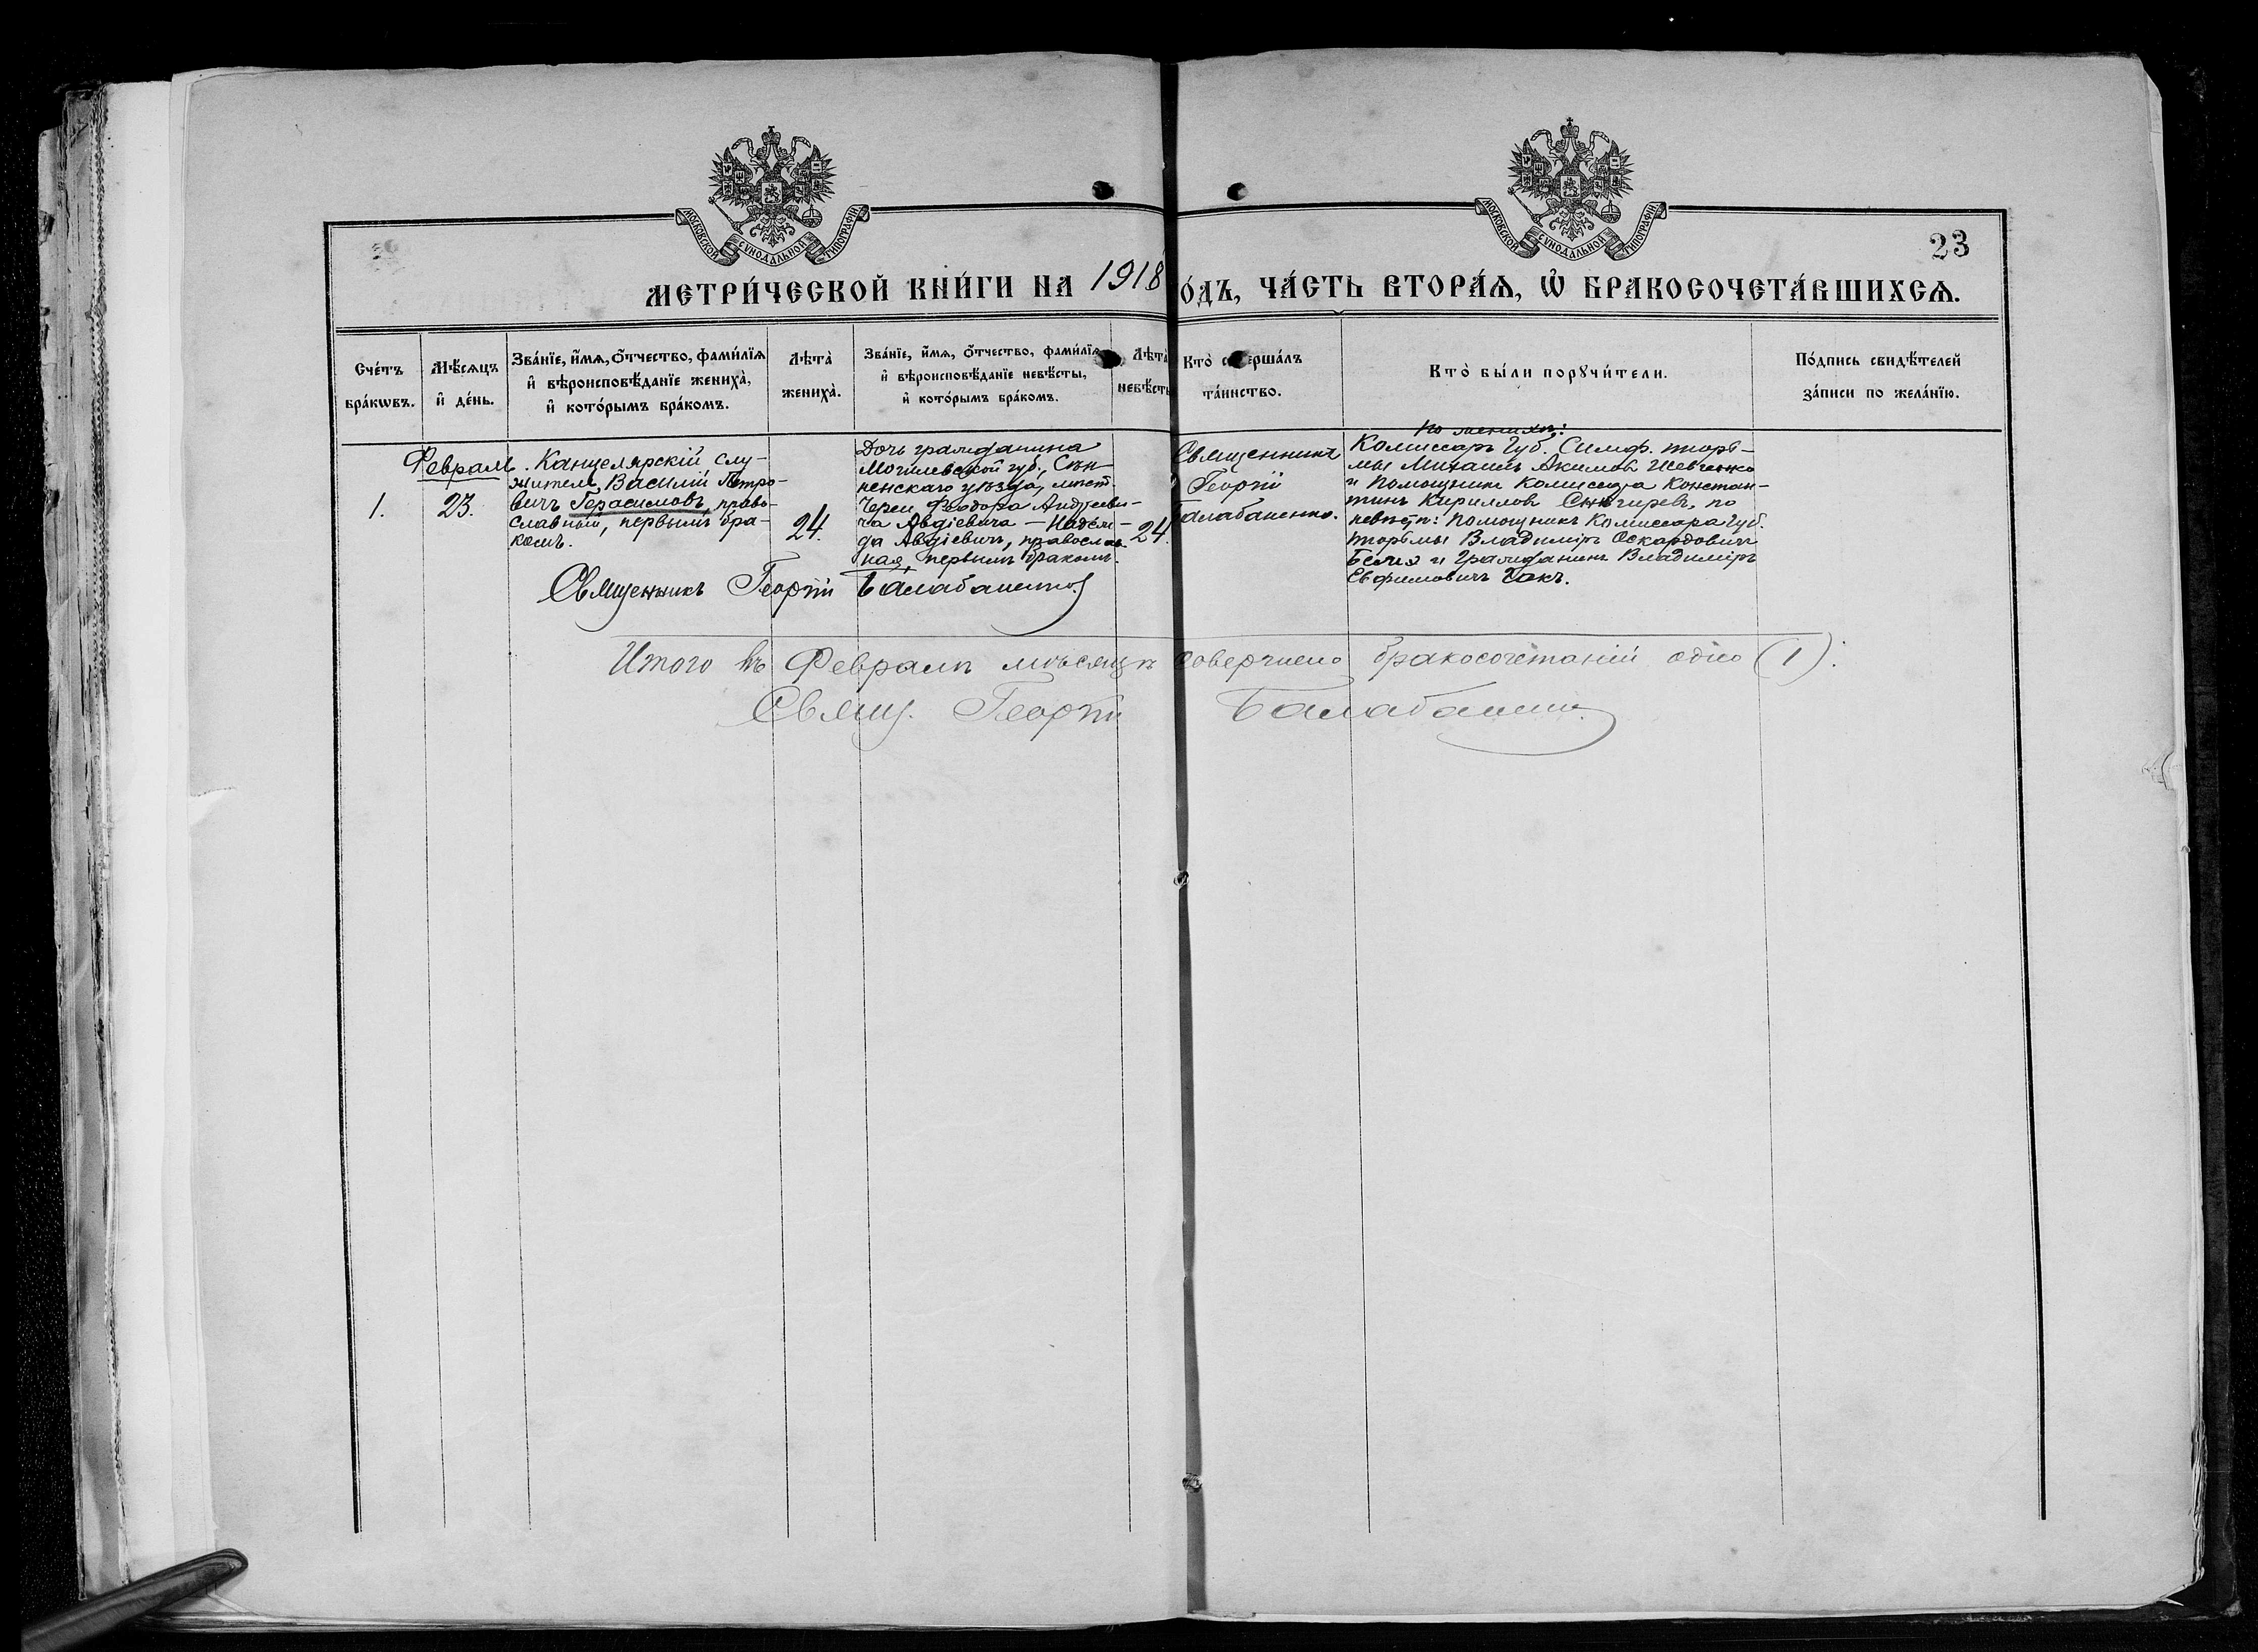 МОСКОВСКОЙ СУНОДАЛЬНОЙ ТИПОГРАФІИ
МОСКОВСКОЙ СУНОДАЛЬНОЙ ТИПОГРАФІИ
23
МЕТРИ́ЧЕСКОЙ КНИ́ГИ НА 1918
О́ДЪ, ЧА́СТЬ ВТОРА́Ѧ, Ѡ҆ БРАКОСОЧЕТА́ВШИХСѦ.
Сче́тъ
бра́кѡвъ.
Мѣ́сѧцъ
и҆ де́нь.
Зва́нїе, и҆́мѧ, ѻ҆́тчество, фами́лїѧ
и҆ вѣроисповѣ́данїе жениха̀,
и҆ кото́рымъ бра́комъ.
Лѣта̀
жениха̀.
Зва́нїе, и҆́мѧ, ѻ҆́тчество, фами́лїѧ
и҆ вѣроисповѣ́данїе невѣ́сты,
и҆ кото́рымъ бра́комъ.
Лѣта̀
невѣ́сты
Кто̀ с ерша́лъ
та́инство.
Кто̀ бы́ли порꙋчи́тели.
По́дпись свидѣ́телей
за́писи по жела́нїю.
Февраль.
1.
23.
Канцелярскій слу-
житель Василій Петро-
вичъ Герасимовъ, право-
славный, первымъ бра-
комъ.
24.
Дочь гражданина
Могилевской губ., Сѣн-
ненскаго уѣзда, мѣст.
Череи Феодора Андрееви-
ча Авдіевича — Надеж-
да Авдіевичъ, православ-
ная, первымъ бракомъ.
24.
Священникъ
Георгій
Балабаненко.
По женихѣ:
Комиссаръ Губ. Симф. тюрь-
мы Михаилъ Акимовъ Шевченко
и Помощникъ Комиссара Констан-
тинъ Кирилловъ Снѣгиревъ, по
невѣстѣ: Помощникъ Комиссара Губ.
тюрьмы Владиміръ Оскардовичъ
и Гражданинъ Владиміръ
Евфимовичъ
Священникъ Георгій Балабаненко
Итого въ Февралѣ мѣсяцѣ совершено бракосочетаній одно (1).
Свящ. Георгій Балабаненко